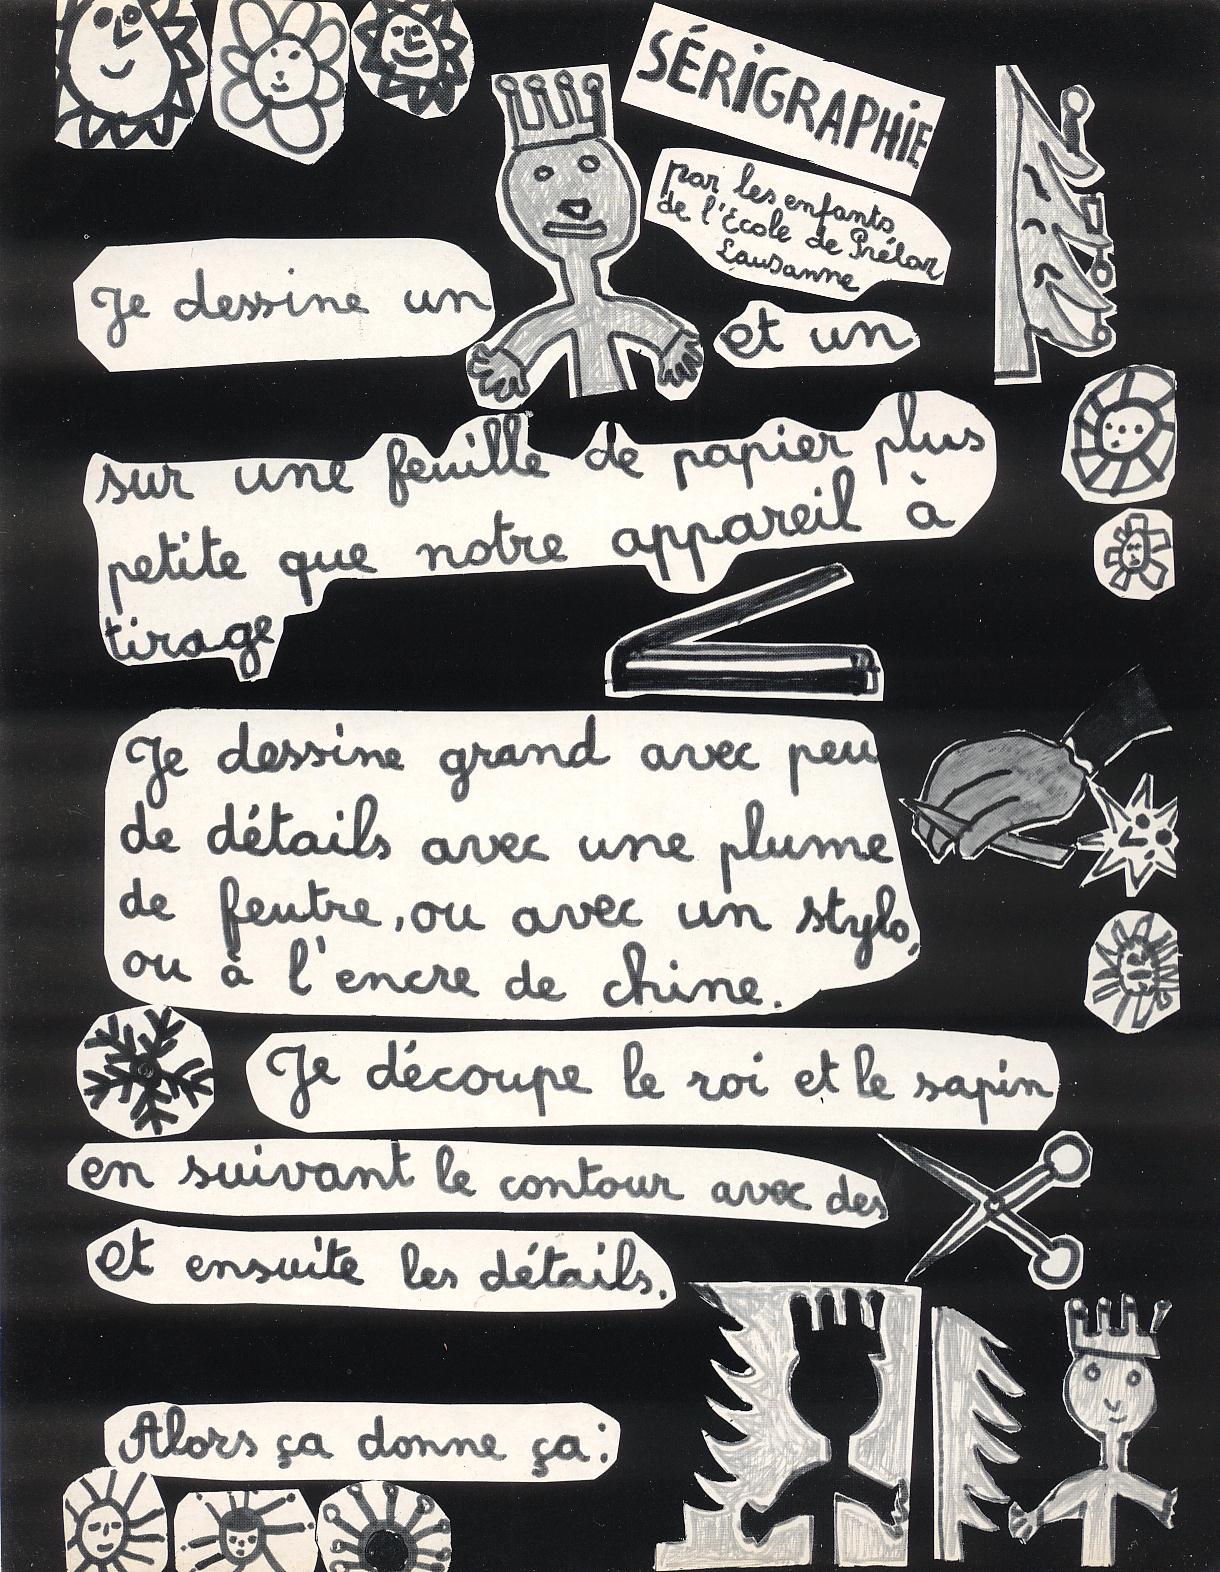 SÉRIGRAPHIE
par les enfants
de l'Ecole de Prélaz
Lausanne
Je dessine un
et un
sur une feuille de papier plus
petite que notre appareil à
tirage
Je dessine grand avec peu
de détails avec une plume
de feutre, ou avec un stylo,
ou à l'encre de chine.
Je découpe le roi et le sapin
en suivant le contour avec des
et ensuite les détails.
Alors ça donne ça: